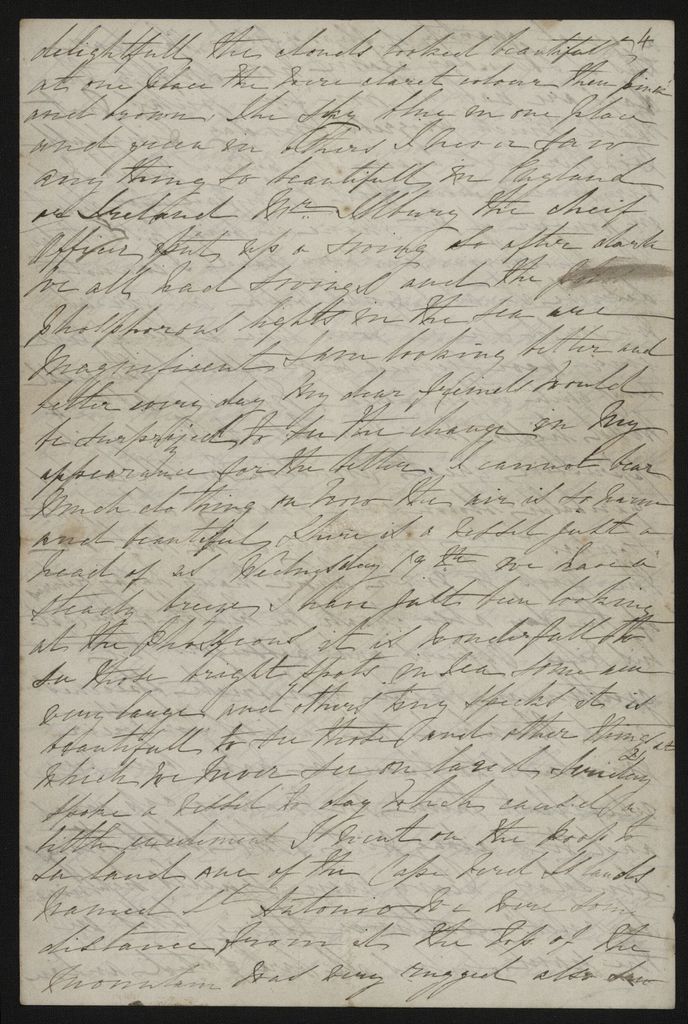 4
delightfull, the clouds looked beautifull
at one place the were claret colour then pink
and brown, the sky blue in one place
and green in others I never saw
any thing so beautifull, in England
or Ireland Mr. the cheif
Officer put up a swing so after dark
we all had swings and the
phosphorous lights in the sea are
magnificent, I am looking better and
better every day my dear freinds would
be surprized to see the change in my
appearance for the better. I cannot bear
much clothing on now the air is so warm
and beautiful, there is a vessel just a
head of us Wednesday 19th we have a
steady breeze I have just been looking
at the it is wonderfull to
see those bright spots in sea some are
very large and others tiny specks it is
beautifull to see those and other things
which we never see on land Friday 21st
spoke a vessel to day which caused a
little excitement I went on the poop to
see land one of the Cape Verd Islands
named St Antonio we were some
distance from it the top of the
mountain was very rugged also saw